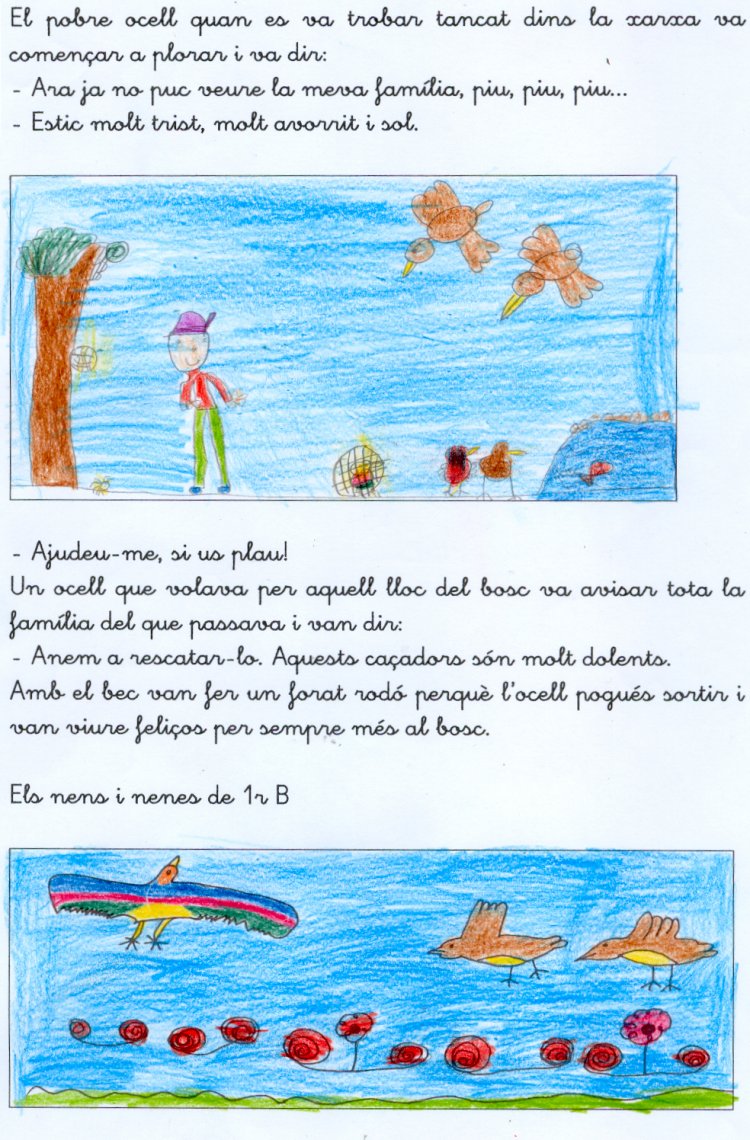 El pobre ocell quan es va trobar tancat dins la xarxa va
començar a plorar i va dir:
- Ara ja no puc veure la meva família, piu, piu, piu...
- Estic molt trist, molt avorrit i sol.
- Ajudeu-me, si us plau!
Un ocell que volava per aquell lloc del bosc va avisar tota la
família del que passava i van dir:
- Anem a rescatar-lo. Aquests caçadors són molt dolents.
Amb el bec van fer un forat rodó perquè l'ocell pogués sortir i
van viure feliços per sempre més al bosc.
Els nens i nenes de 1r B